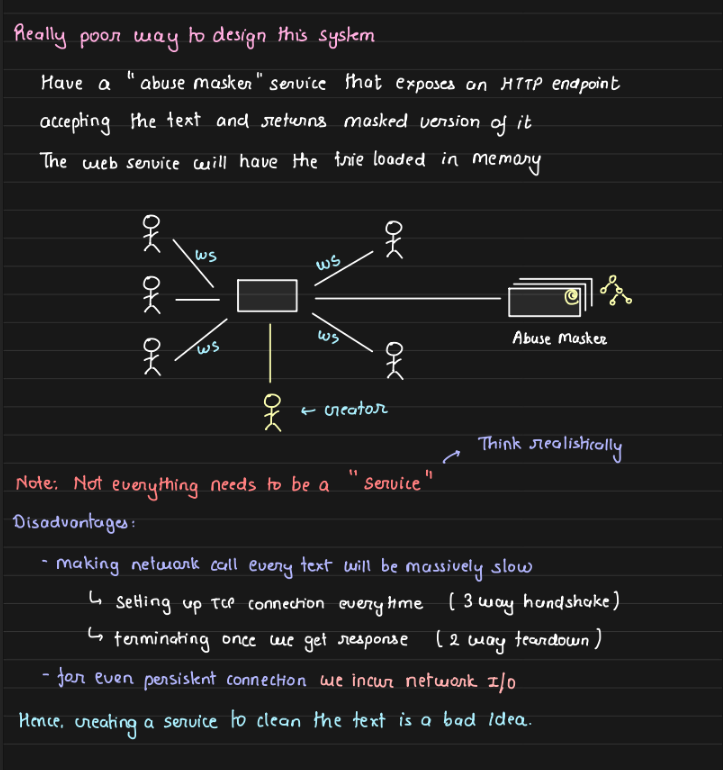 Really poor way to design this system
Have a "abuse masker" service that exposes an HTTP endpoint
accepting the text and returns masked version of it
The web service will have the trie loaded in memory
ws
ws
ws
ws
Abuse masker
← creator
Think realistically
Note: Not everything needs to be a "service"
Disadvantages:
- making network call every text will be massively slow
↳ Setting up TCP connection everytime (3 way handshake)
↳ terminating once we get response (2 way teardown)
- for even persistent connection we incur network I/O
Hence, creating a service to clean the text is a bad idea.